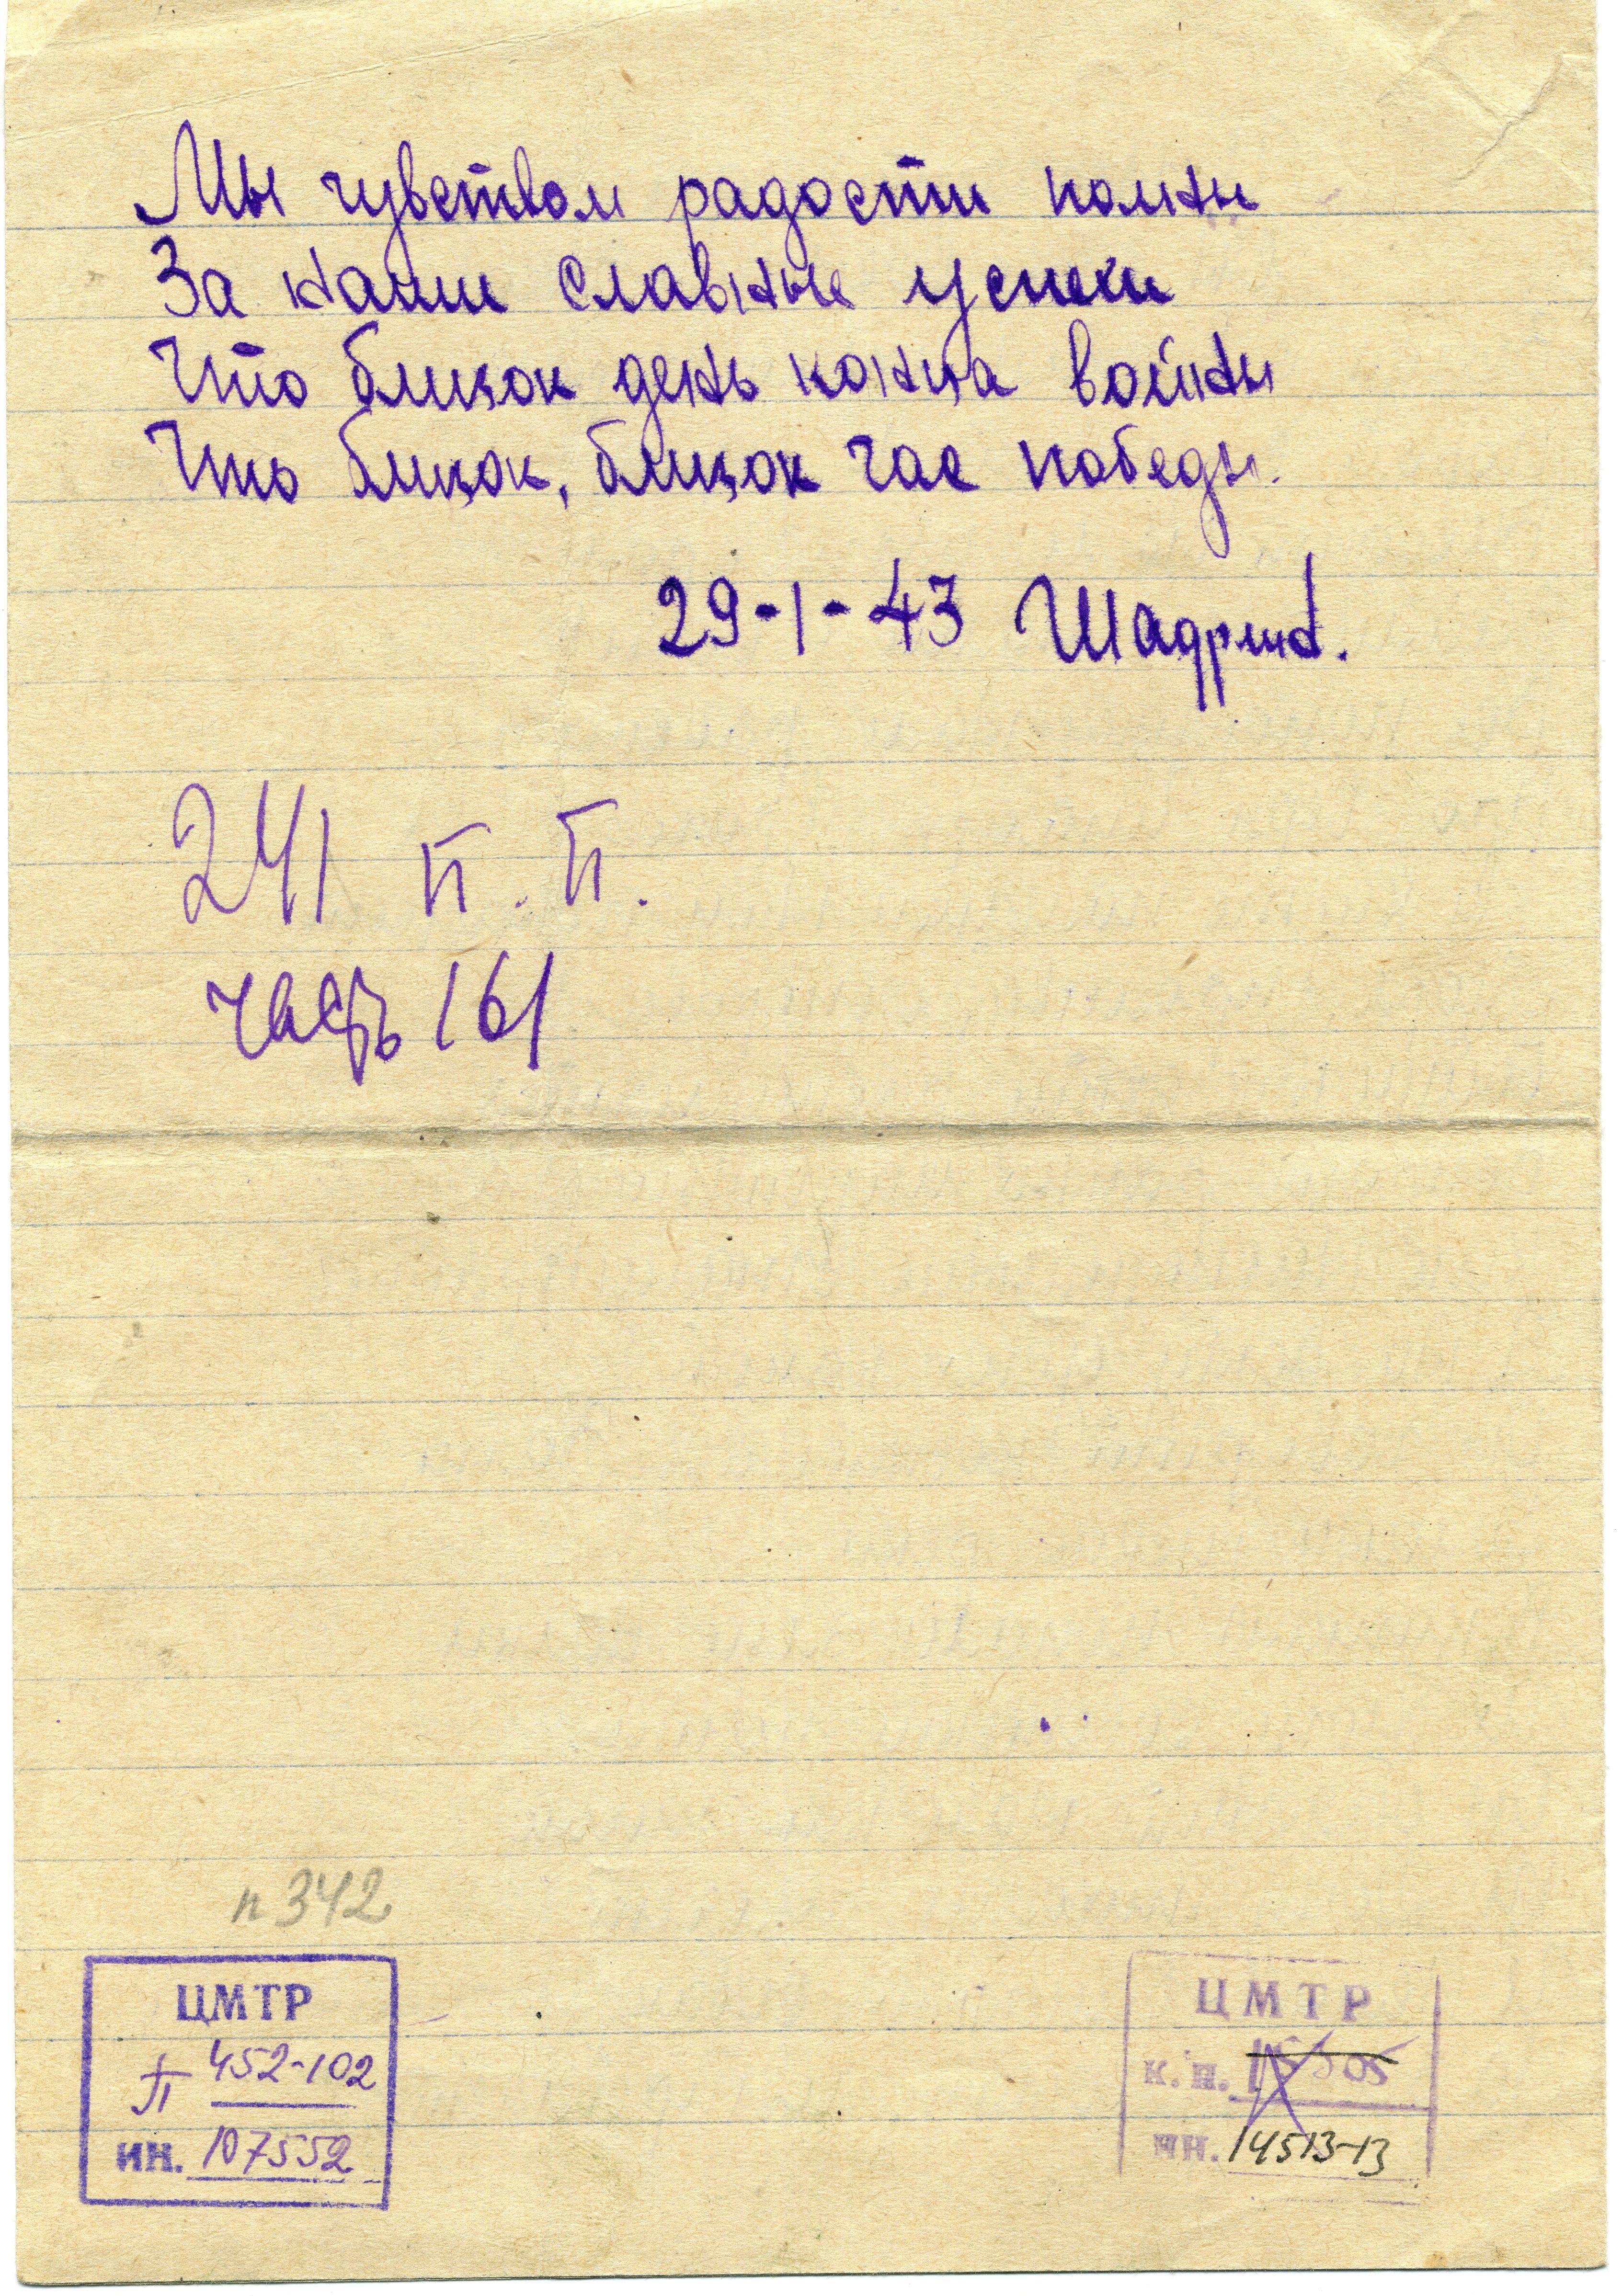 Мы чувством радости полны
За наши славные успехи
Что близок день конца войны
Что близок, близок час победы.
29-1-43 Шадрин.
241 п.п.
часть 161
п 342
ЦМТР
452-102
ин. 107552
ЦМТР
к.п.
ин. 14513-13